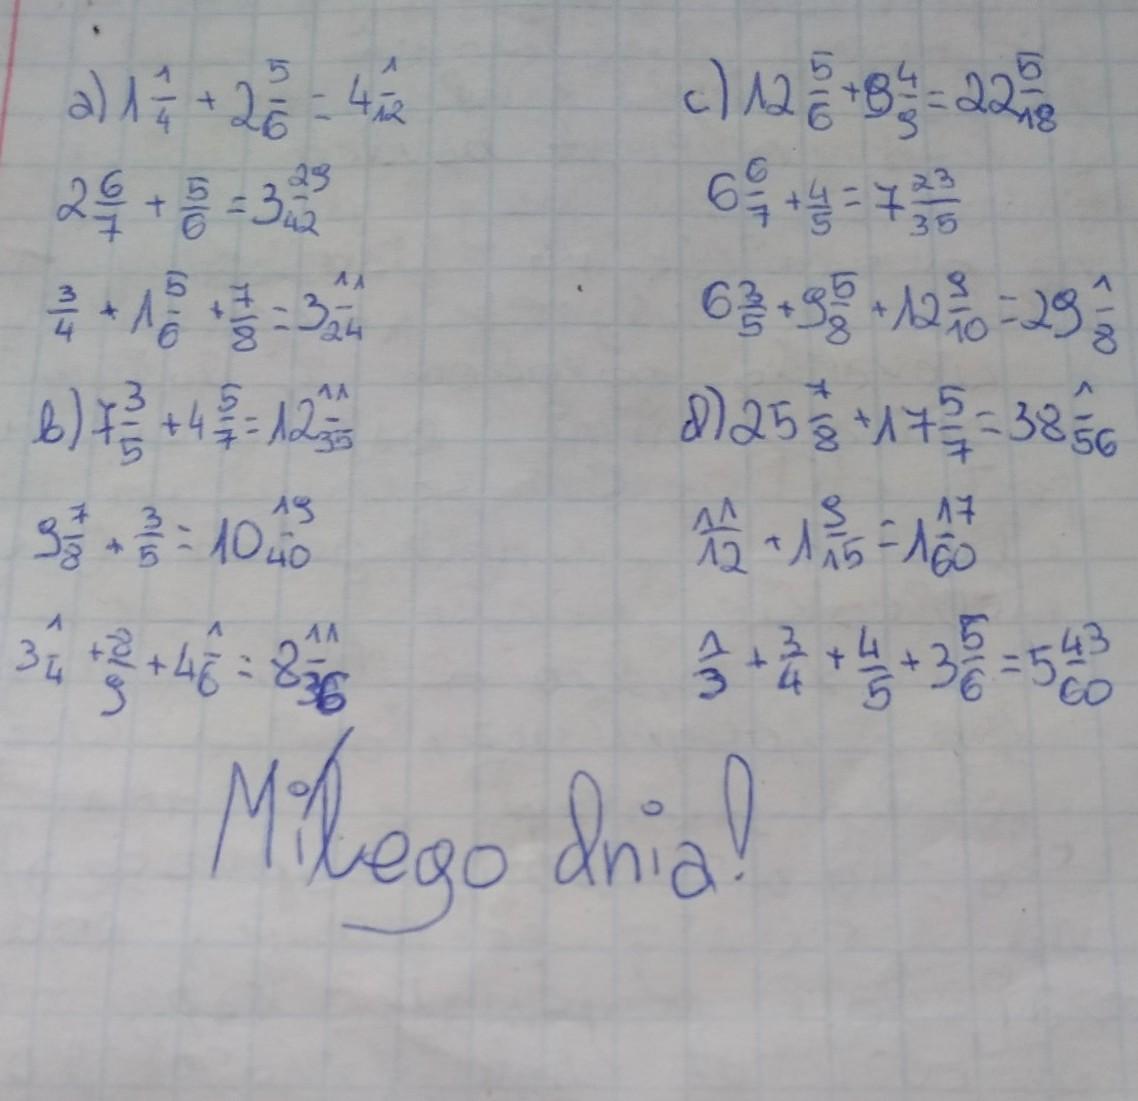 a) 1 1/4 + 2 5/6 = 4 1/12
2 6/7 + 5/6 = 3 29/42
3/4 + 1 5/6 + 7/8 = 3 11/24
b) 7 3/5 + 4 5/7 = 12 11/35
9 7/8 + 3/5 = 10 19/40
3 1/4 + 2/9 + 4 1/6 = 8 11/36
c) 12 5/6 + 9 4/9 = 22 5/18
6 6/7 + 4/5 = 7 23/35
6 3/5 + 9 5/8 + 12 9/10 = 29 1/8
d) 25 7/8 + 17 5/7 = 38 1/56
11/12 + 1 9/15 = 1 17/60
1/3 + 3/4 + 4/5 + 3 5/6 = 5 43/60
Miłego dnia!